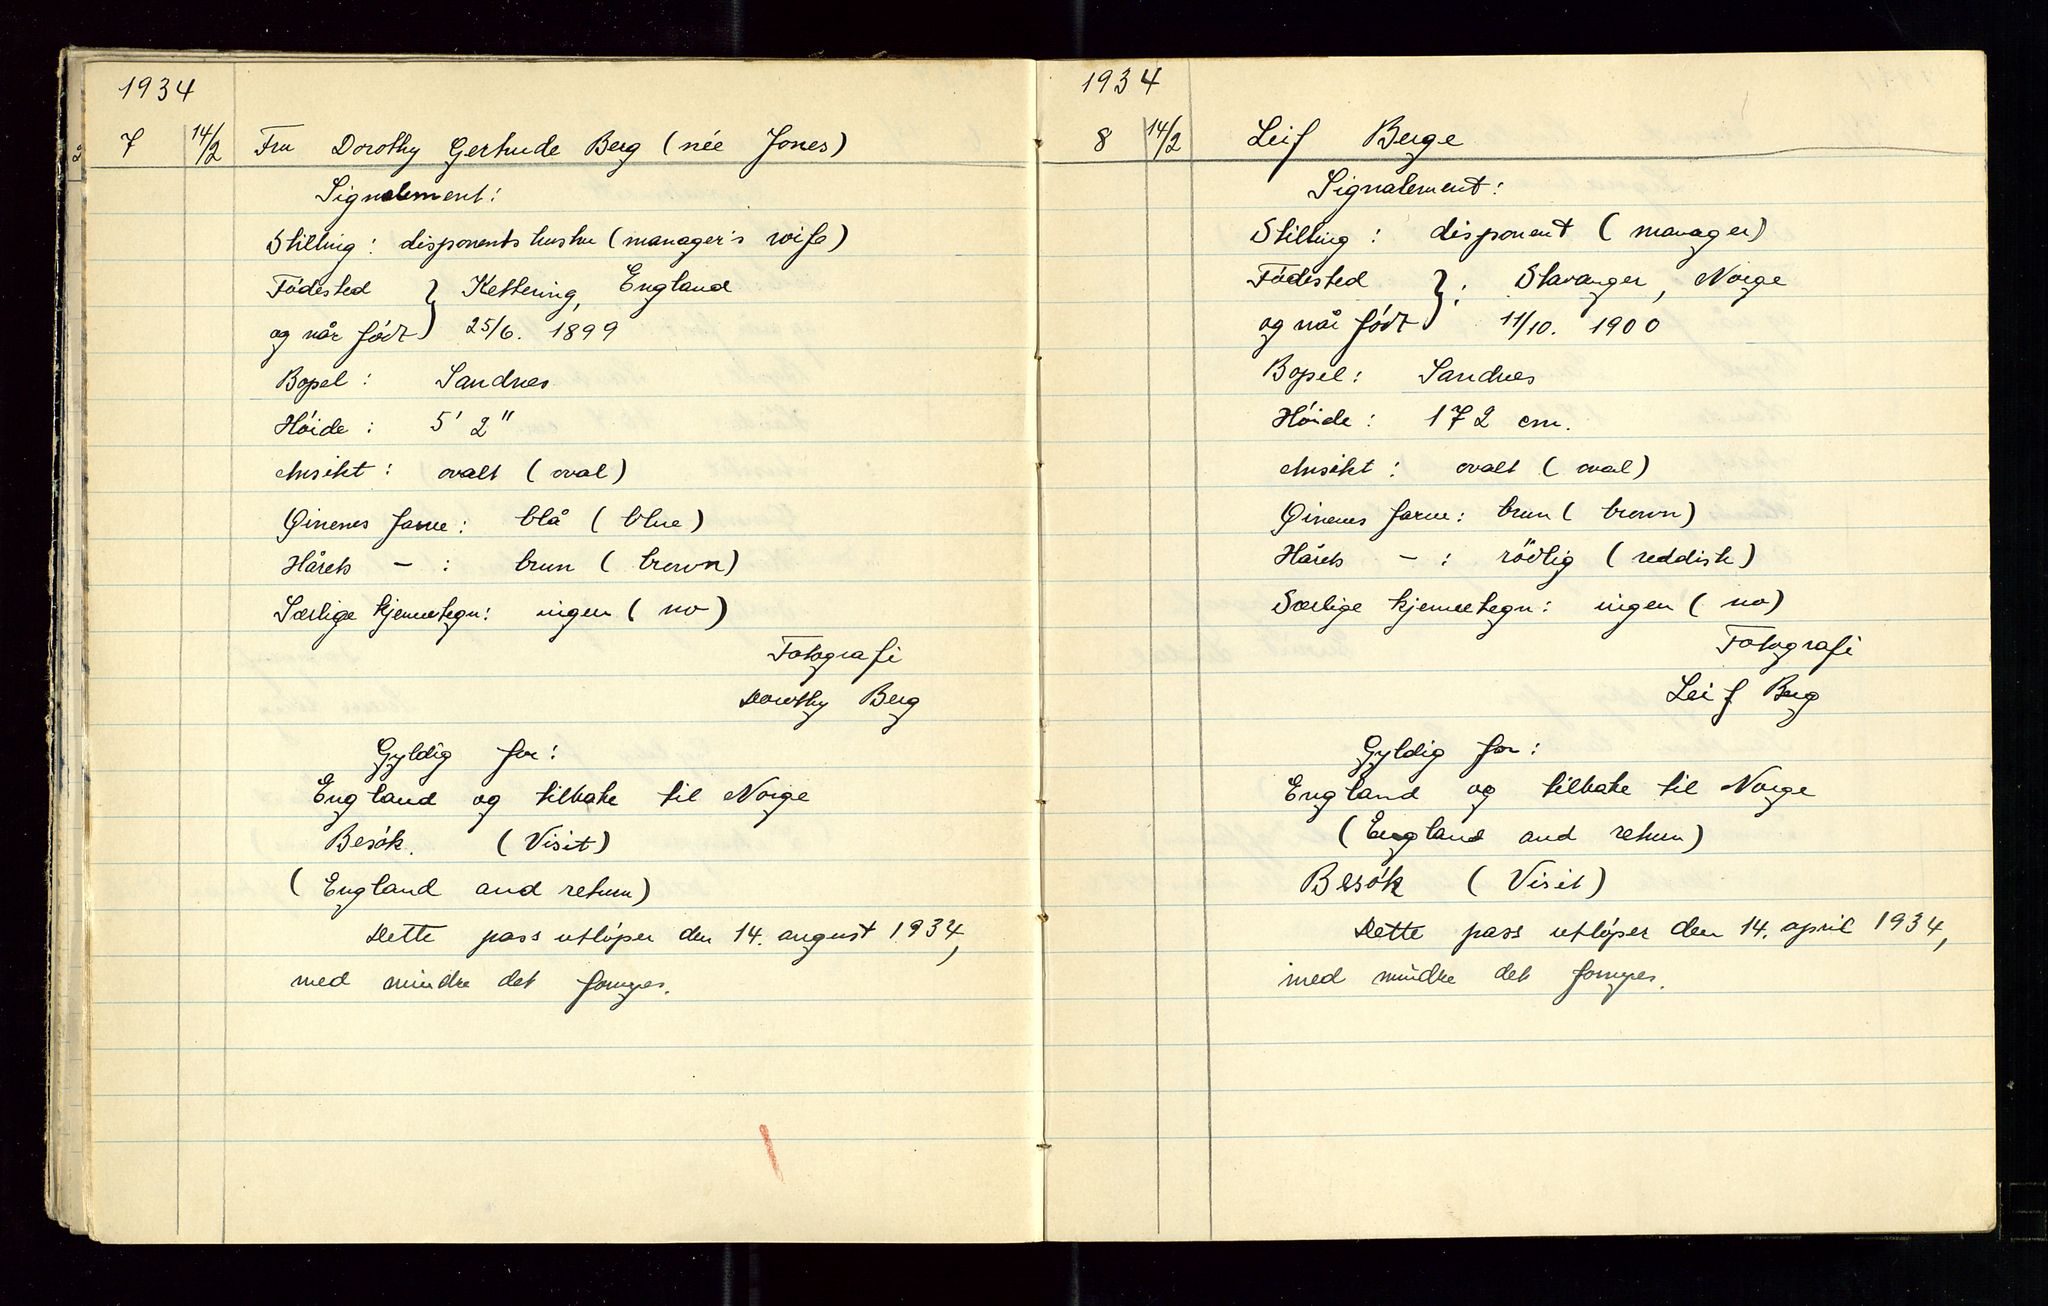 1934
7 14/2 Fru Dorothy Gertrude Berg (née Jones)
Signalement:
Stilling: disponents hustru (manager's wife)
Födested } Kettering, England
og når födt } 25/6. 1899
Bopel: Sandnes
Höide: 5' 2"
Ansikt: ovalt (oval)
Øinenes farve: blå (blue)
Hårets – : brun (brown)
Særlige kjennetegn: ingen (no)
Fotografi
Dorothy Berg
Gyldig for:
England og tilbake til Norge
Besök. (Visit)
(England and return)
Dette pass utlöper den 14. august 1934,
med mindre det fornyes.
1934
8 14/2 Leif Berge
Signalement:
Stilling: disponent (manager)
Födested } : Stavanger, Norge
og når födt } 11/10. 1900
Bopel: Sandnes
Höide: 172 cm.
Ansikt: ovalt (oval)
Øinenes farve: brun (brown)
Hårets – : rödlig (reddish)
Særlige kjennetegn: ingen (no)
Fotografi
Leif Berg
Gyldig for:
England og tilbake til Norge
(England and return)
Besök (Visit)
Dette pass utlöper den 14. april 1934,
med mindre det fornyes.